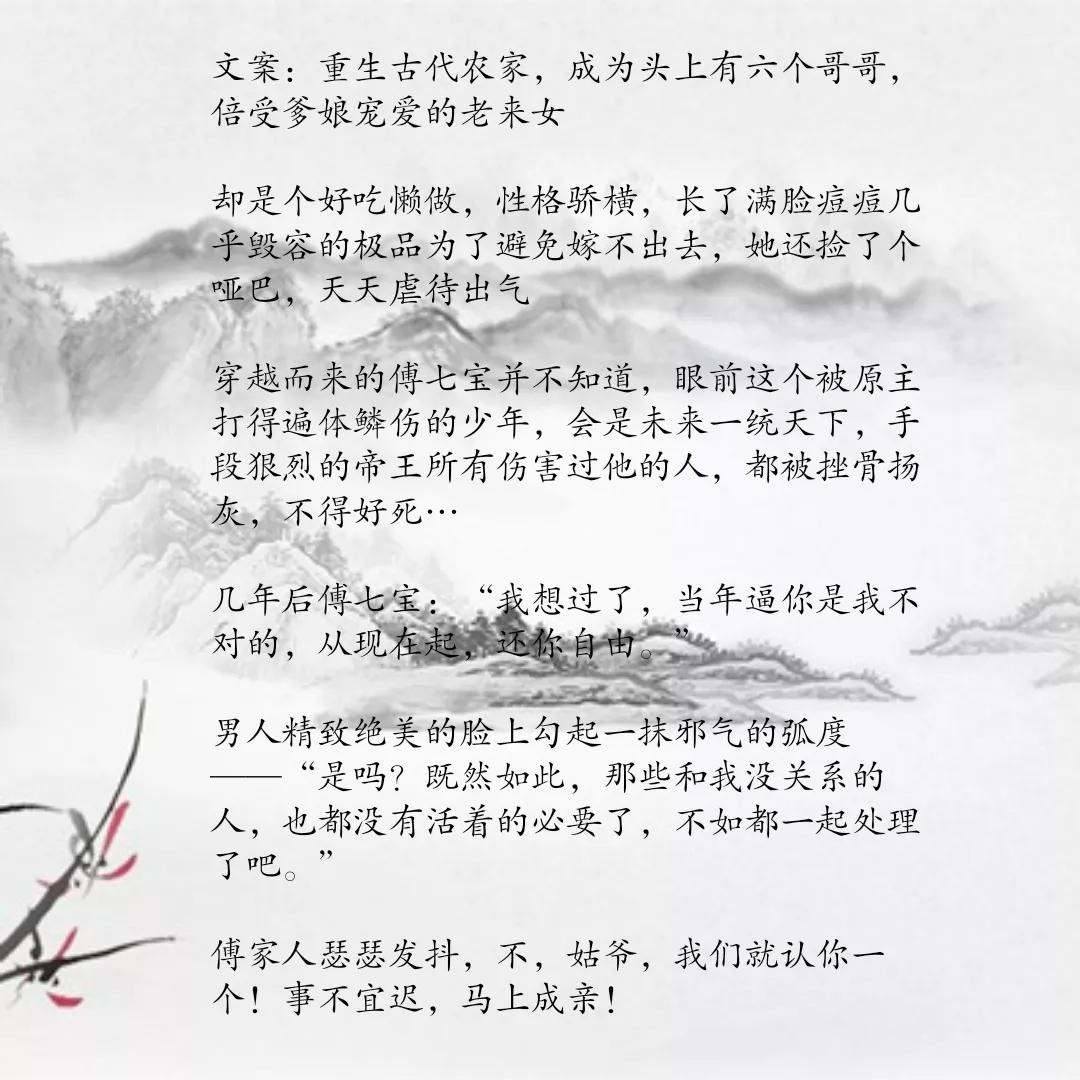 文案：重生古代农家，成为头上有六个哥哥，
倍受爹娘宠爱的老来女
却是个好吃懒做，性格骄横，长了满脸痘痘几
乎毁容的极品为了避免嫁不出去，她还捡了个
哑巴，天天虐待出气
穿越而来的傅七宝并不知道，眼前这个被原主
打得遍体鳞伤的少年，会是未来一统天下，手
段狠烈的帝王所有伤害过他的人，都被挫骨扬
灰，不得好死…
几年后傅七宝：“我想过了，当年逼你是我不
对的，从现在起，还你自由。”
男人精致绝美的脸上勾起一抹邪气的弧度
——“是吗？既然如此，那些和我没关系的
人，也都没有活着的必要了，不如都一起处理
了吧。”
傅家人瑟瑟发抖，不，姑爷，我们就认你一
个！事不宜迟，马上成亲！